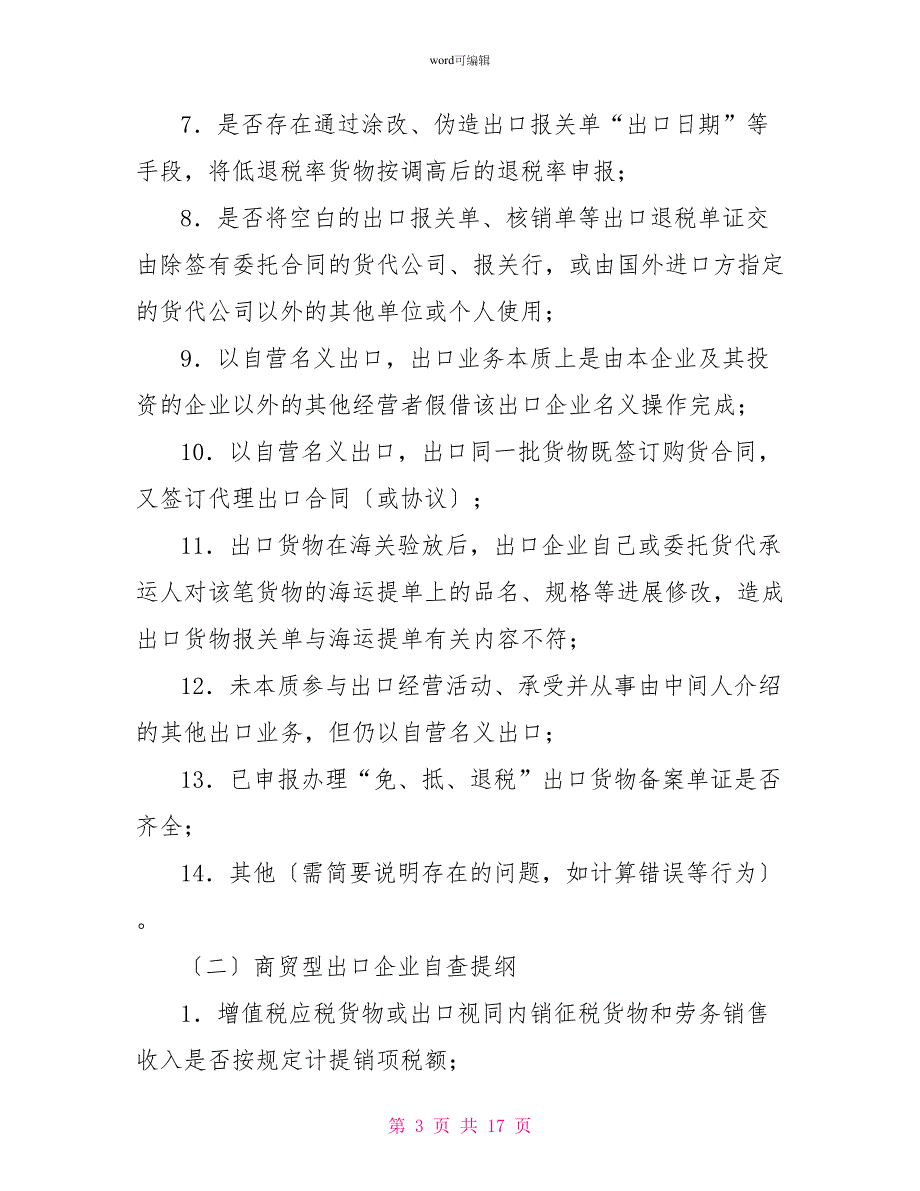 word可编辑
7．是否存在通过涂改、伪造出口报关单“出口日期”等
手段，将低退税率货物按调高后的退税率申报；
8．是否将空白的出口报关单、核销单等出口退税单证交
由除签有委托合同的货代公司、报关行，或由国外进口方指定
的货代公司以外的其他单位或个人使用；
9．以自营名义出口，出口业务本质上是由本企业及其投
资的企业以外的其他经营者假借该出口企业名义操作完成；
10．以自营名义出口，出口同一批货物既签订购货合同，
又签订代理出口合同〔或协议〕；
11．出口货物在海关验放后，出口企业自己或委托货代承
运人对该笔货物的海运提单上的品名、规格等进展修改，造成
出口货物报关单与海运提单有关内容不符；
12．未本质参与出口经营活动、承受并从事由中间人介绍
的其他出口业务，但仍以自营名义出口；
13．已申报办理“免、抵、退税”出口货物备案单证是否
齐全；
14．其他〔需简要说明存在的问题，如计算错误等行为〕
。
〔二〕商贸型出口企业自查提纲
1．增值税应税货物或出口视同内销征税货物和劳务销售
收入是否按规定计提销项税额；
第 3 页 共 17 页